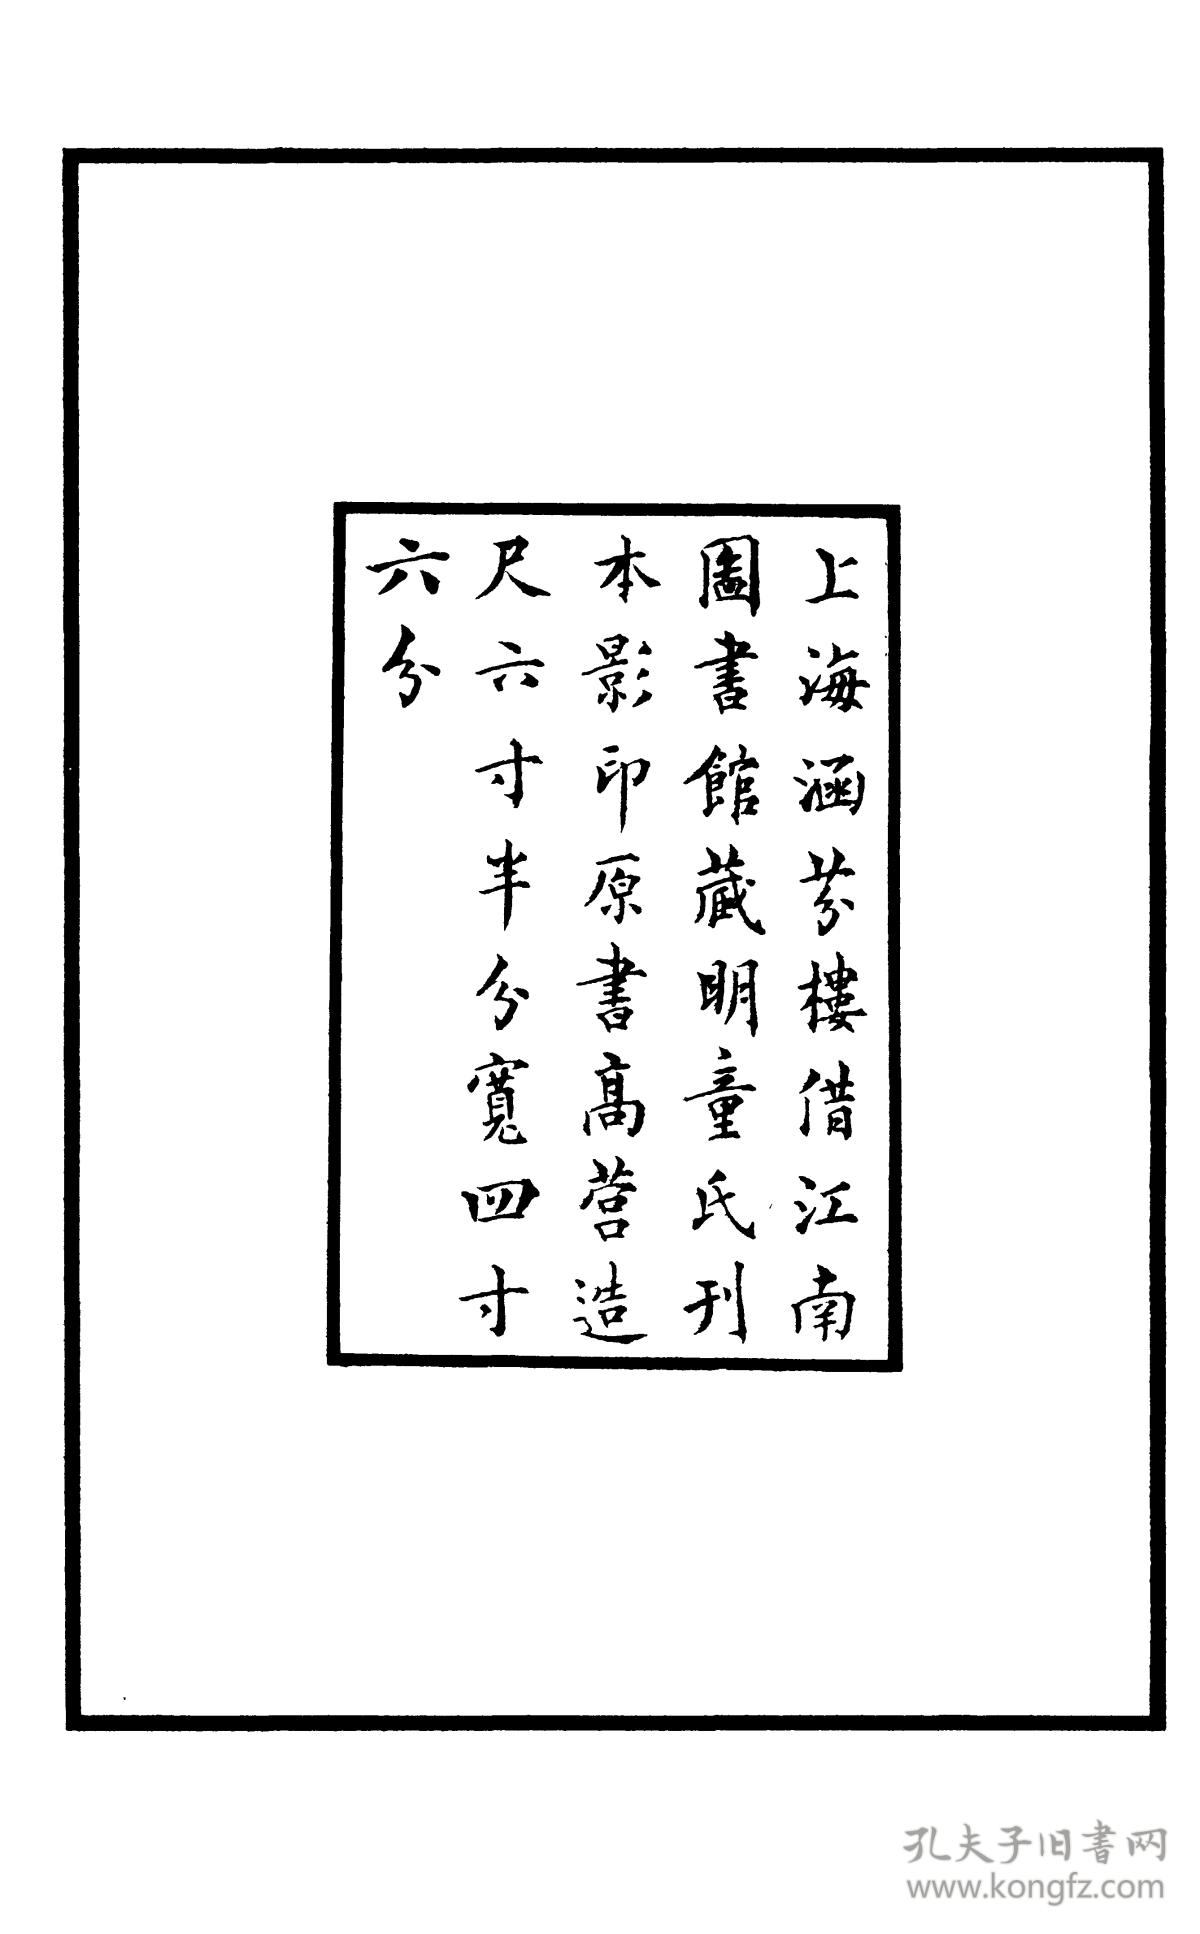 上海涵芬樓借江南
圖書館藏明童氏刊
本影印原書高營造
尺六寸半分寬四寸
六分
孔夫子旧书网
www.kongfz.com